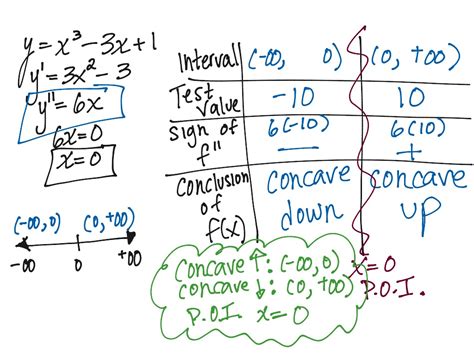 y = x³ - 3x + 1
y' = 3x² - 3
y'' = 6x
6x = 0
x = 0
(-∞, 0) (0, +∞)
-∞ 0 +∞
Interval (-∞, 0) (0, +∞)
Test Value -10 10
sign of f'' 6(-10) − 6(10) +
Conclusion of f(x) concave down concave up
x = 0
P.O.I.
concave ↑: (-∞, 0)
concave ↓: (0, +∞)
P.O.I. x = 0